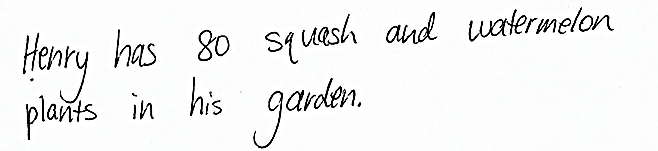 Henry has 80 squash and watermelon
plants in his garden.